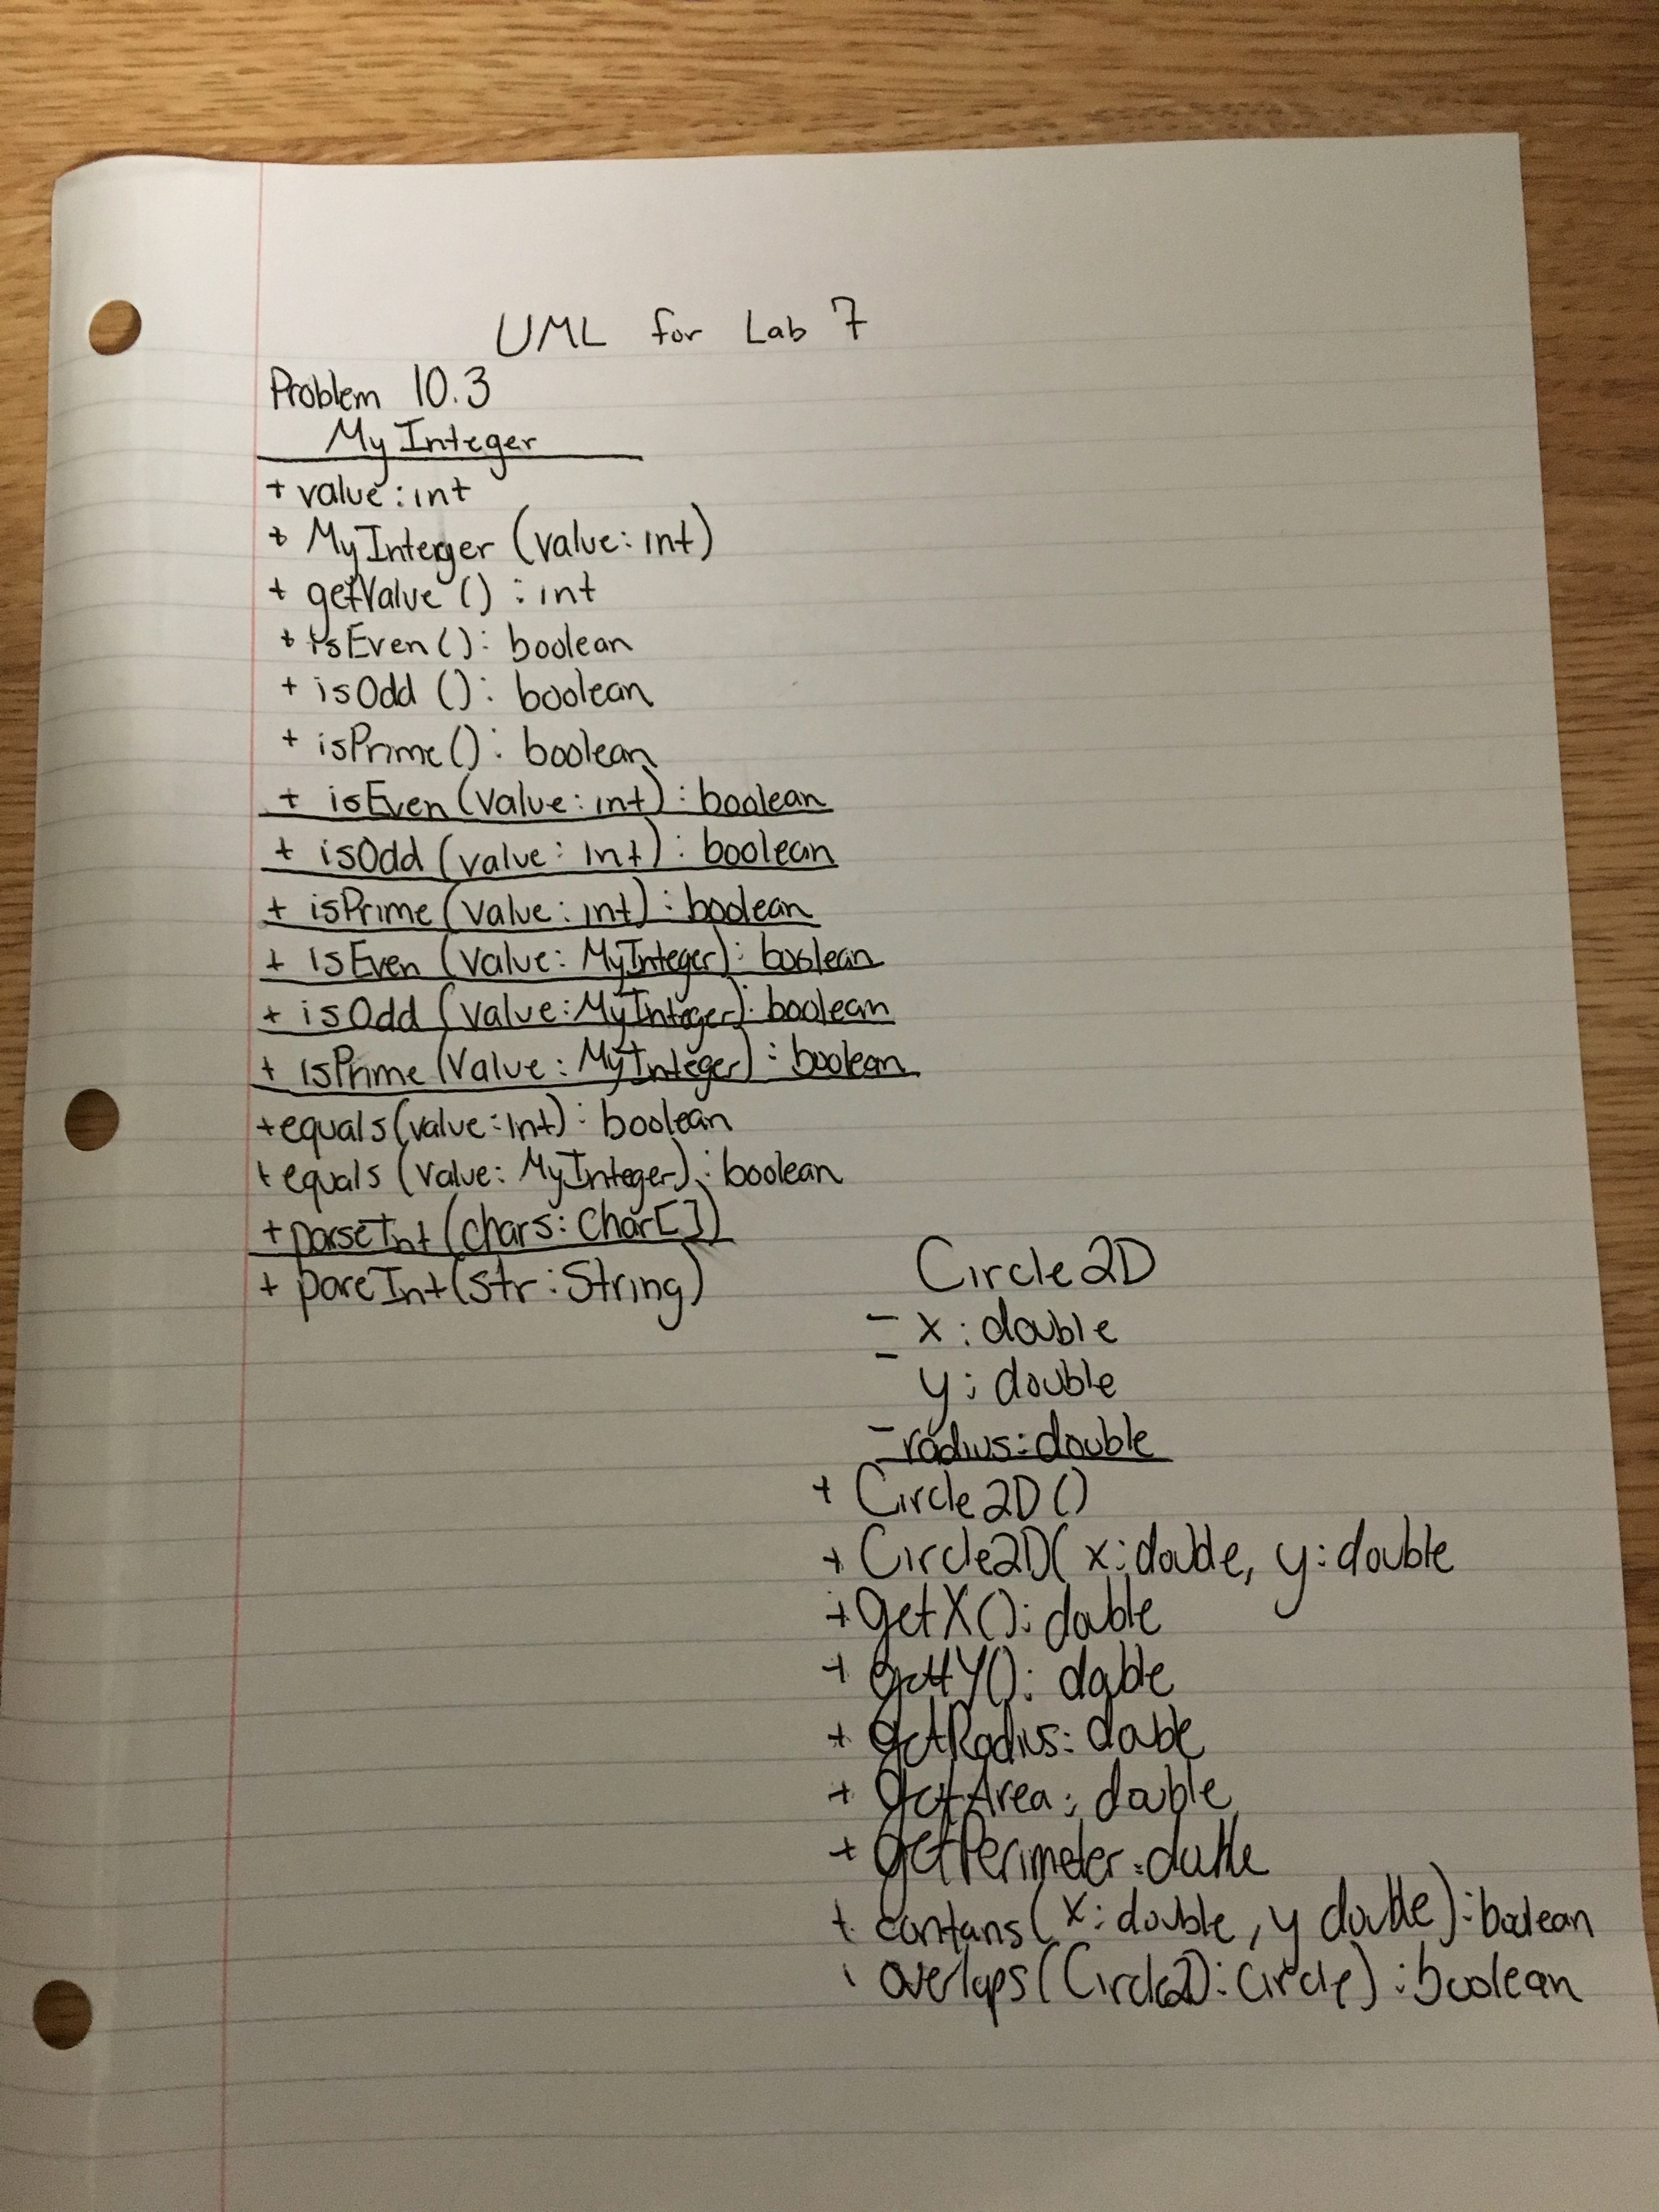 UML for Lab 7
Problem 10.3
MyInteger
+ value: int
+ MyInteger (value: int)
+ getValue () : int
+ isEven(): boolean
+ isOdd (): boolean
+ isPrime(): boolean
+ isEven(value: int): boolean
+ isOdd (value: int): boolean
+ isPrime(value: int): boolean
+ isEven (value: MyInteger): boolean
+ isOdd (value: MyInteger): boolean
+ isPrime (value: MyInteger): boolean
+equals(value: int): boolean
+ equals (value: MyInteger): boolean
+ parseInt (chars: char[])
+ pareInt(str: String)
Circle2D
- x: double
- y: double
- radius: double
+ Circle2D()
+ Circle2D( x: double, y: double
+ getX(): double
+ getY(): double
+ getRadius: double
+ getArea: double
+ getPerimeter: double
+ contans( x: double, y double): boolean
+ overlaps(Circle2D: circle): boolean